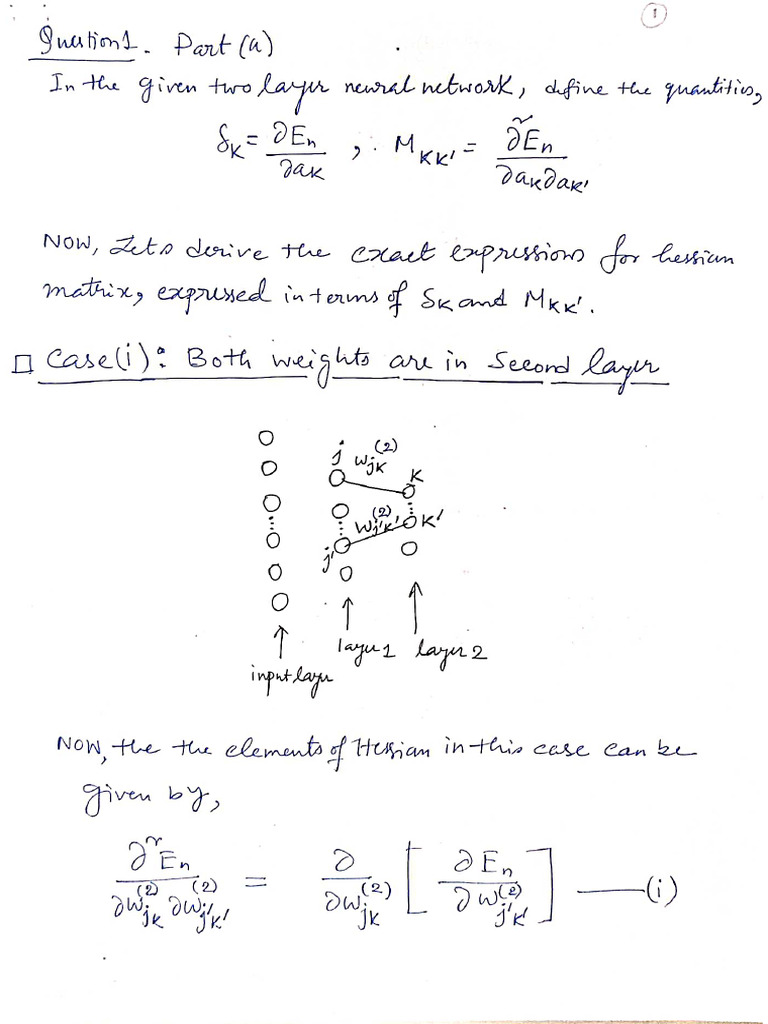 1
Question1. Part (a)
In the given two layer neural network, define the quantities,
δ_K = ∂E_n / ∂a_K , M_KK' = ∂²E_n / ∂a_K ∂a_K'
NOW, Lets derive the exact expressions for hessian
matrix, expressed in terms of δ_K and M_KK'.
□ Case(i): Both weights are in Second layer
j W_jK^(2) K
W_j'K'^(2) K'
j'
layer1 layer2
input layer
NOW, the the elements of Hessian in this case can be
given by,
∂²E_n / ∂W_jK^(2) ∂W_j'K'^(2) = ∂ / ∂W_jK^(2) [ ∂E_n / ∂W_j'K'^(2) ] —— (i)